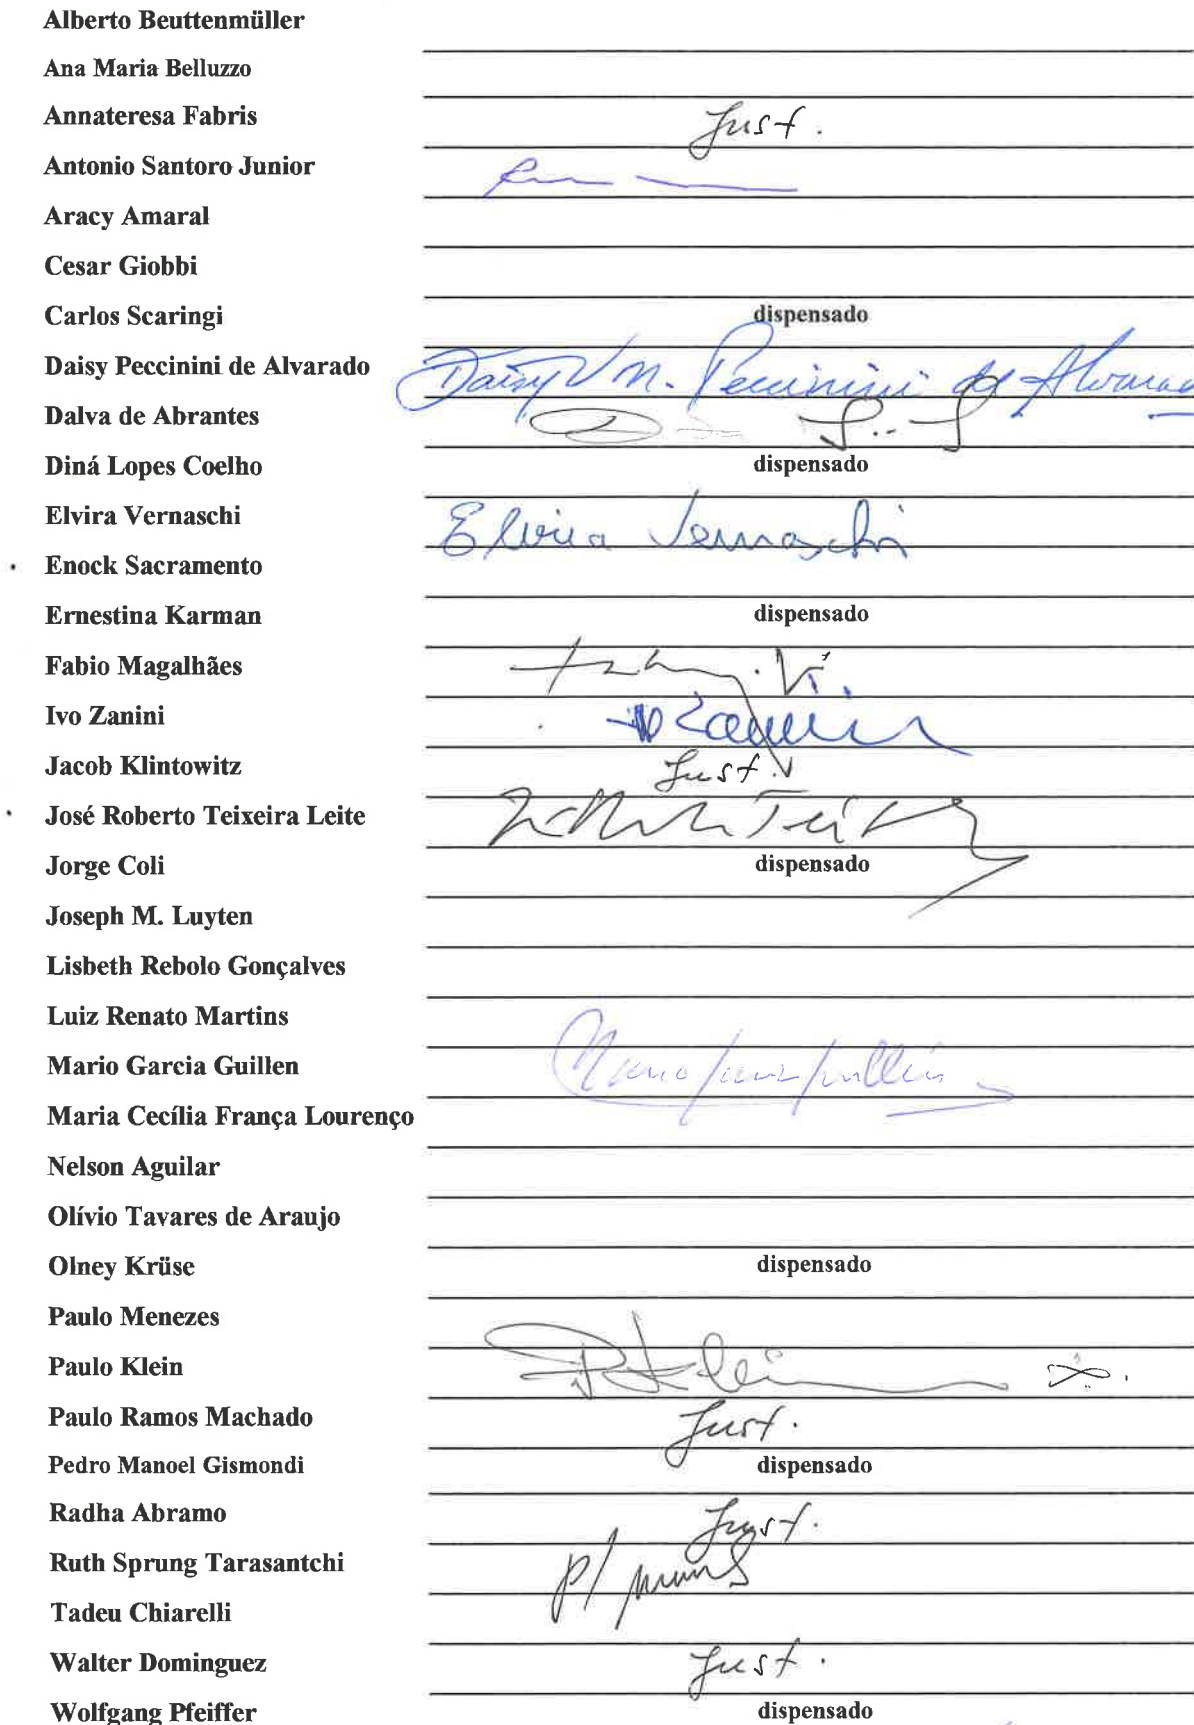 Alberto Beuttenmüller
Ana Maria Belluzzo
Annateresa Fabris Just.
Antonio Santoro Junior
Aracy Amaral
Cesar Giobbi
Carlos Scaringi dispensado
Daisy Peccinini de Alvarado Daisy V M. Peccinini de Alvarado
Dalva de Abrantes
Diná Lopes Coelho dispensado
Elvira Vernaschi Elvira Vernaschi
Enock Sacramento
Ernestina Karman dispensado
Fabio Magalhães
Ivo Zanini Zanini
Jacob Klintowitz Just.
José Roberto Teixeira Leite
Jorge Coli dispensado
Joseph M. Luyten
Lisbeth Rebolo Gonçalves
Luiz Renato Martins
Mario Garcia Guillen Mario Garcia Guillen
Maria Cecília França Lourenço
Nelson Aguilar
Olívio Tavares de Araujo
Olney Krüse dispensado
Paulo Menezes
Paulo Klein P. Klein
Paulo Ramos Machado Just.
Pedro Manoel Gismondi dispensado
Radha Abramo Just.
Ruth Sprung Tarasantchi P/
Tadeu Chiarelli
Walter Dominguez Just.
Wolfgang Pfeiffer dispensado